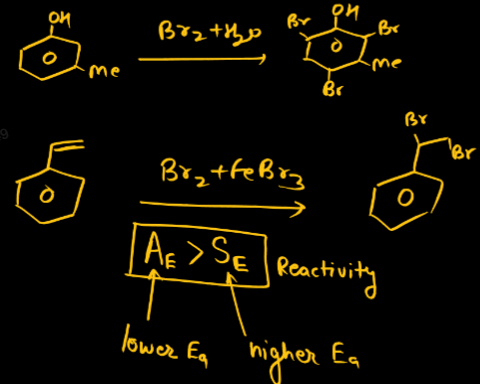 OH
Me
Br₂+H₂O
OH
Br
Br
Me
Br
Br₂+FeBr₃
Br
Br
A_E > S_E
Reactivity
lower Ea
higher Ea
9